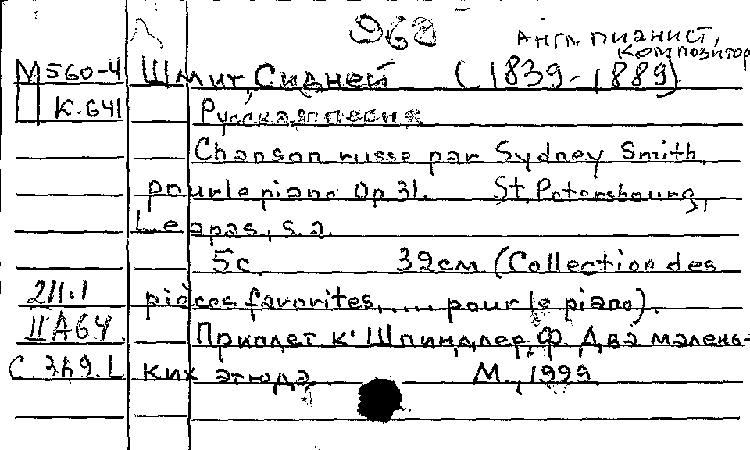 968
англ. пианист,
композитор
М560-4 Шмит, Сидней (1839-1889)
К.641 Русская песня
Chanson russe par Sydney Smith
pour le piano Op 31. St. Petersbourg,
Leapas, s.a.
5с. 32см (Collection des
211.1 pièces favorites, .... pour le piano).
II A64 Приплет к: Шпиндлер, Ф. Два малень-
ких этюда М., 1999